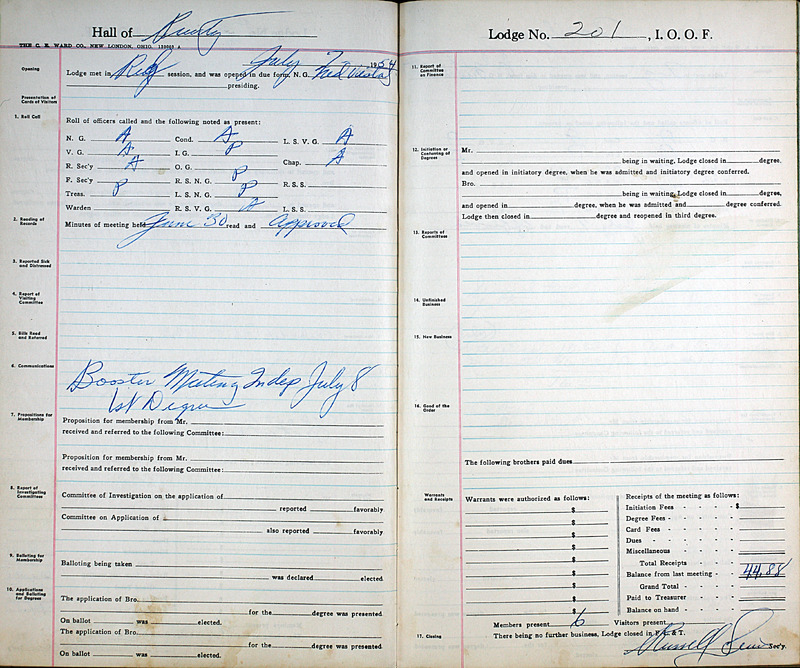 Hall of
THE C. E. WARD CO., NEW LONDON, OHIO.
July 7 1954
Opening
Lodge met in Reg session, and was opened in due form, N. G.
presiding.
Presentation of Cards of Visitors
1. Roll Call
Roll of officers called and the following noted as present:
N. G. A Cond. A L. S. V. G. A
V. G. A I. G. P
R. Sec'y A O. G. P Chap. A
F. Sec'y P R. S. N. G. P R. S. S.
Treas. L. S. N. G. P
Warden R. S. V. G. A L. S. S.
2. Reading of Records
Minutes of meeting held June 30 read and Approved
3. Reported Sick and Distressed
4. Report of Visiting Committee
5. Bills Read and Referred
6. Communications
Booster Meeting Indep July 8
1st Degree
7. Propositions for Membership
Proposition for membership from Mr.
received and referred to the following Committee:
Proposition for membership from Mr.
received and referred to the following Committee:
8. Report of Investigating Committee
Committee of Investigation on the application of
reported favorably
Committee on Application of
also reported favorably
9. Balloting for Membership
Balloting being taken
was declared elected
10. Applications and Balloting for Degrees
The application of Bro.
for the degree was presented
On ballot was elected.
The application of Bro.
for the degree was presented
On ballot was elected.
Lodge No. 201, I. O. O. F.
11. Report of Committee on Finance
12. Initiation or Conferring of Degrees
Mr.
being in waiting, Lodge closed in degree.
and opened in initiatory degree, when he was admitted and initiatory degree conferred.
Bro.
being in waiting, Lodge closed in degree,
and opened in degree, when he was admitted and degree conferred.
Lodge then closed in degree and reopened in third degree.
13. Reports of Committees
14. Unfinished Business
15. New Business
16. Good of the Order
The following brothers paid dues
Warrants and Receipts
Warrants were authorized as follows:
$
$
$
$
$
$
$
$
$
Receipts of the meeting as follows:
Initiation Fees - - - $
Degree Fees - - - - -
Card Fees - - - - -
Dues - - - - -
Miscellaneous
Total Receipts
Balance from last meeting - - 44.88
Grand Total - -
Paid to Treasurer - - -
Balance on hand - - -
Members present 6 Visitors present
17. Closing
There being no further business, Lodge closed in F. L. & T.
Russell Sec'y.